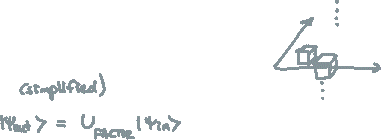 (simplified)
|Ψout> = U_FACTOR |Ψin>